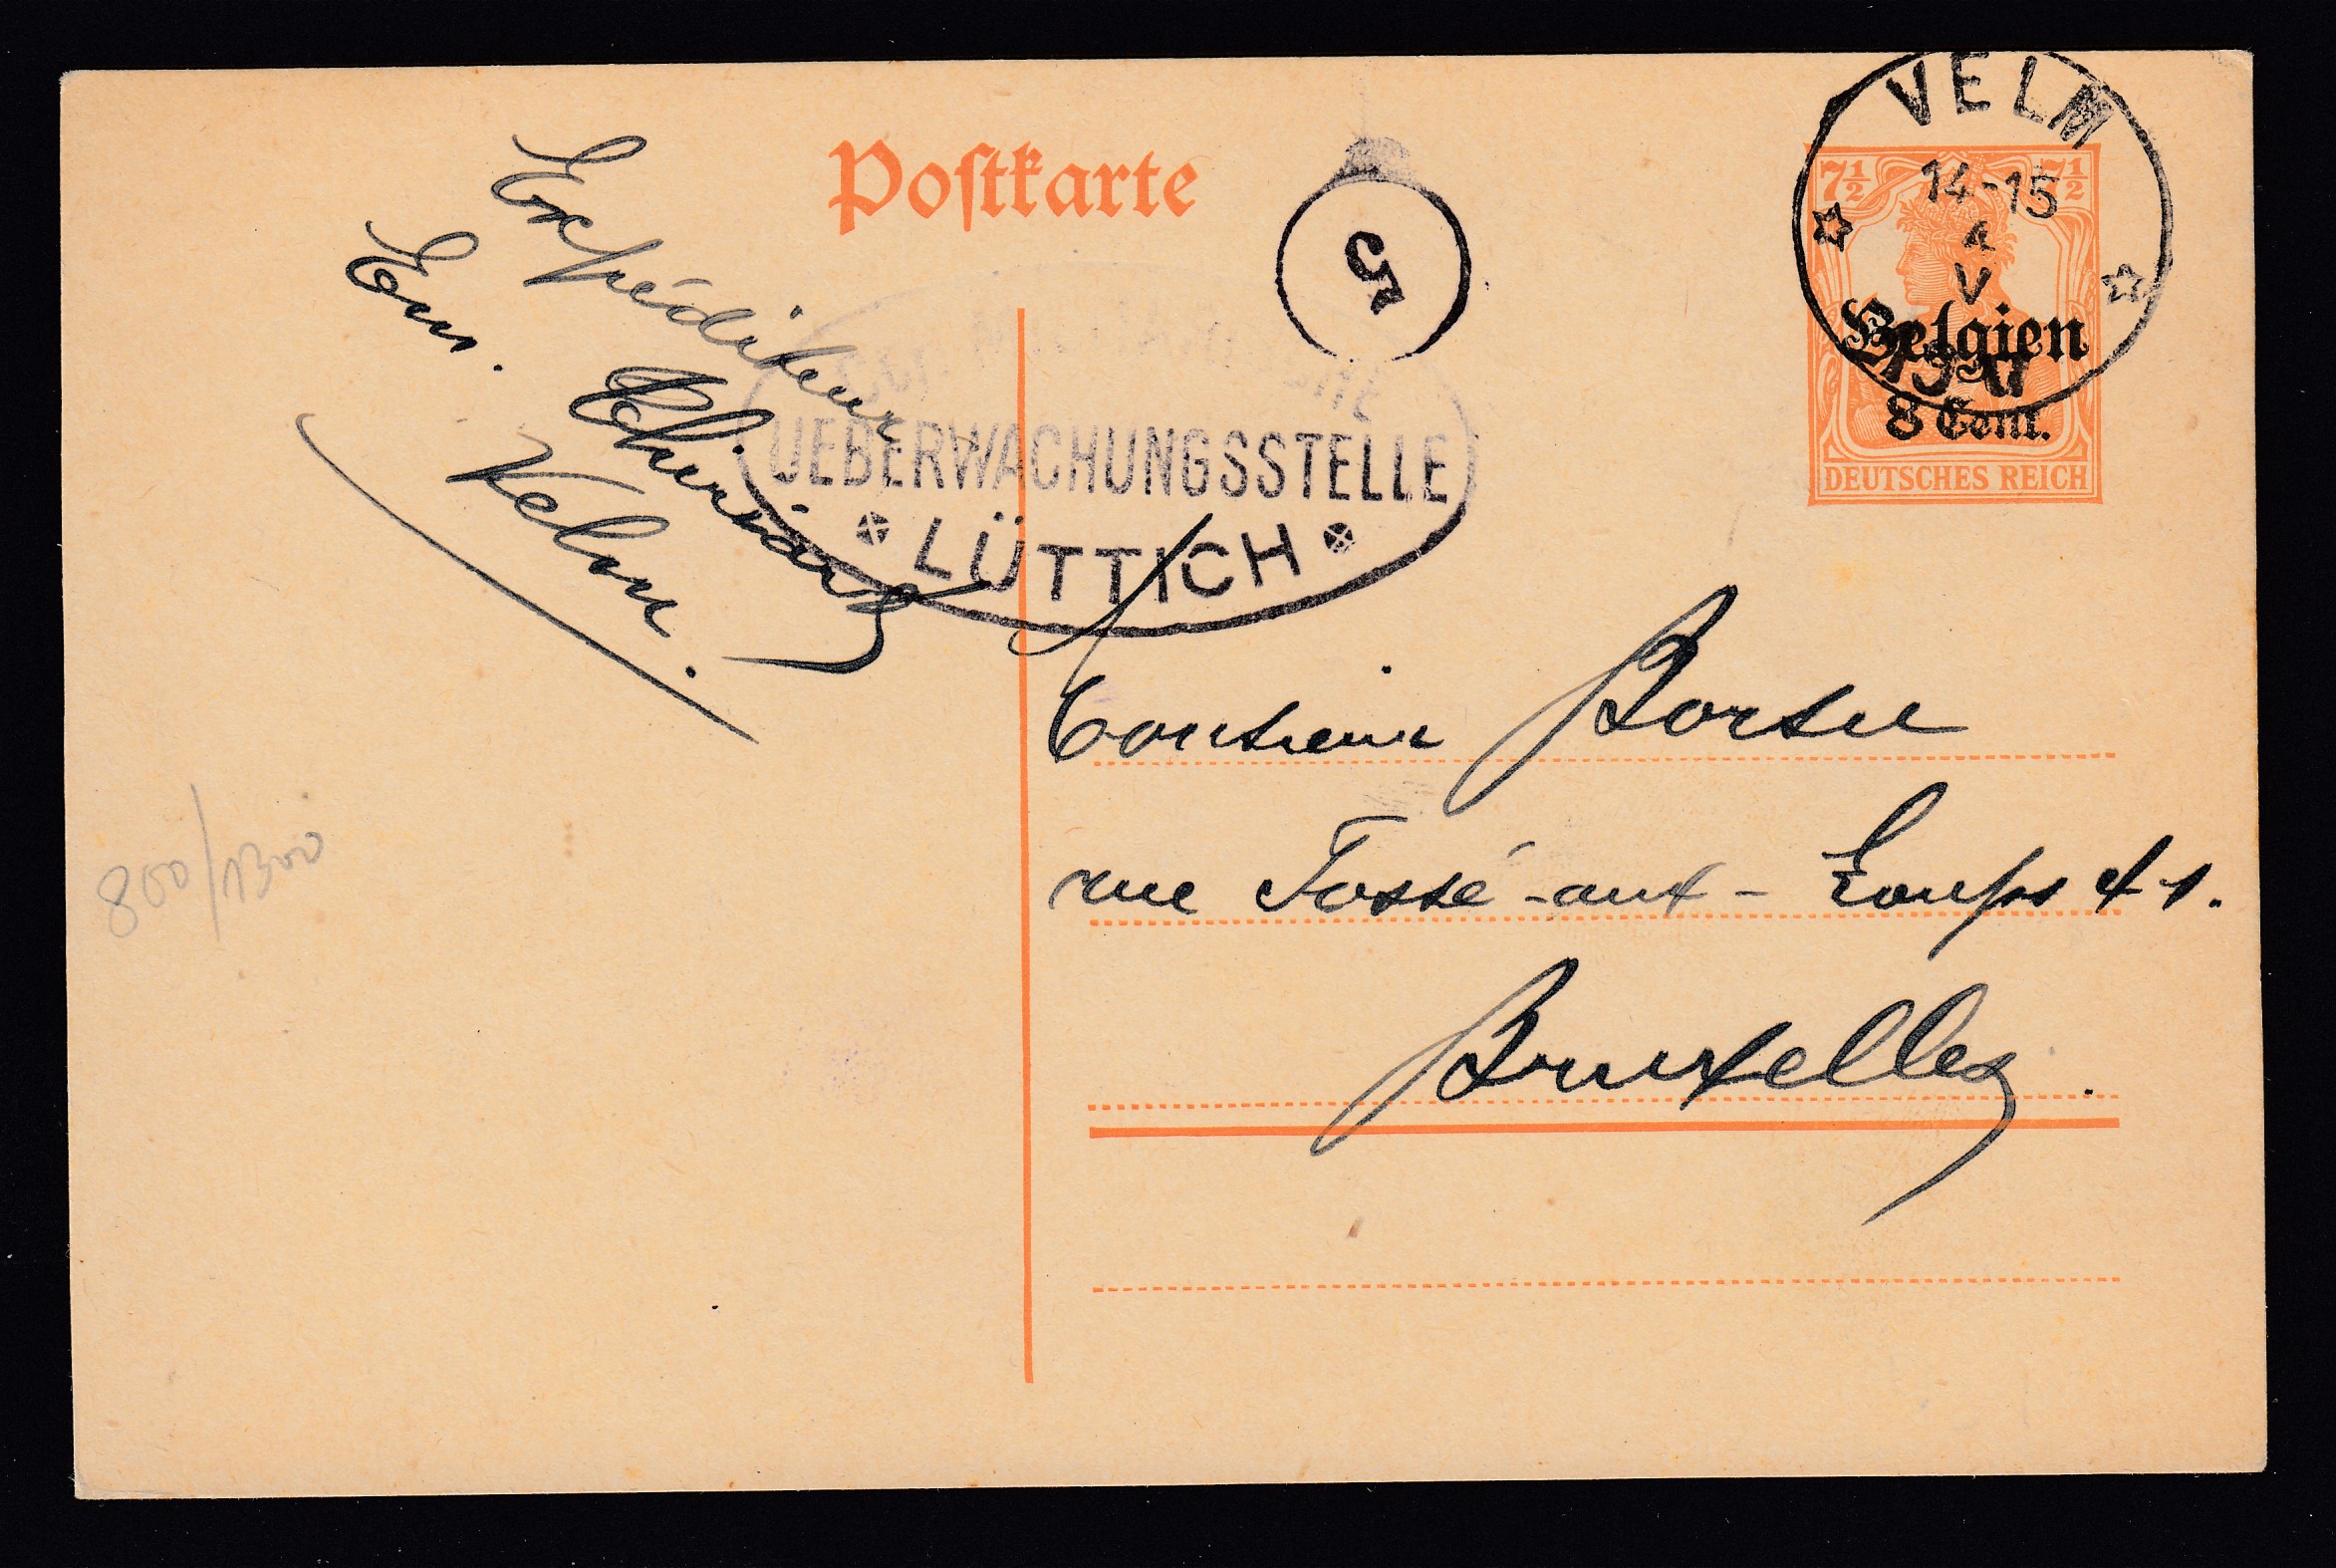 Postkarte
VELM
14-15
V
7½ 7½
Belgien
8 Cent.
DEUTSCHES REICH
5
UEBERWACHUNGSSTELLE
LÜTTICH
Expéditeur
Em.
Velm.
Monsieur Borsu
rue Fossé-aux-Loups
Bruxelles.
800/1300